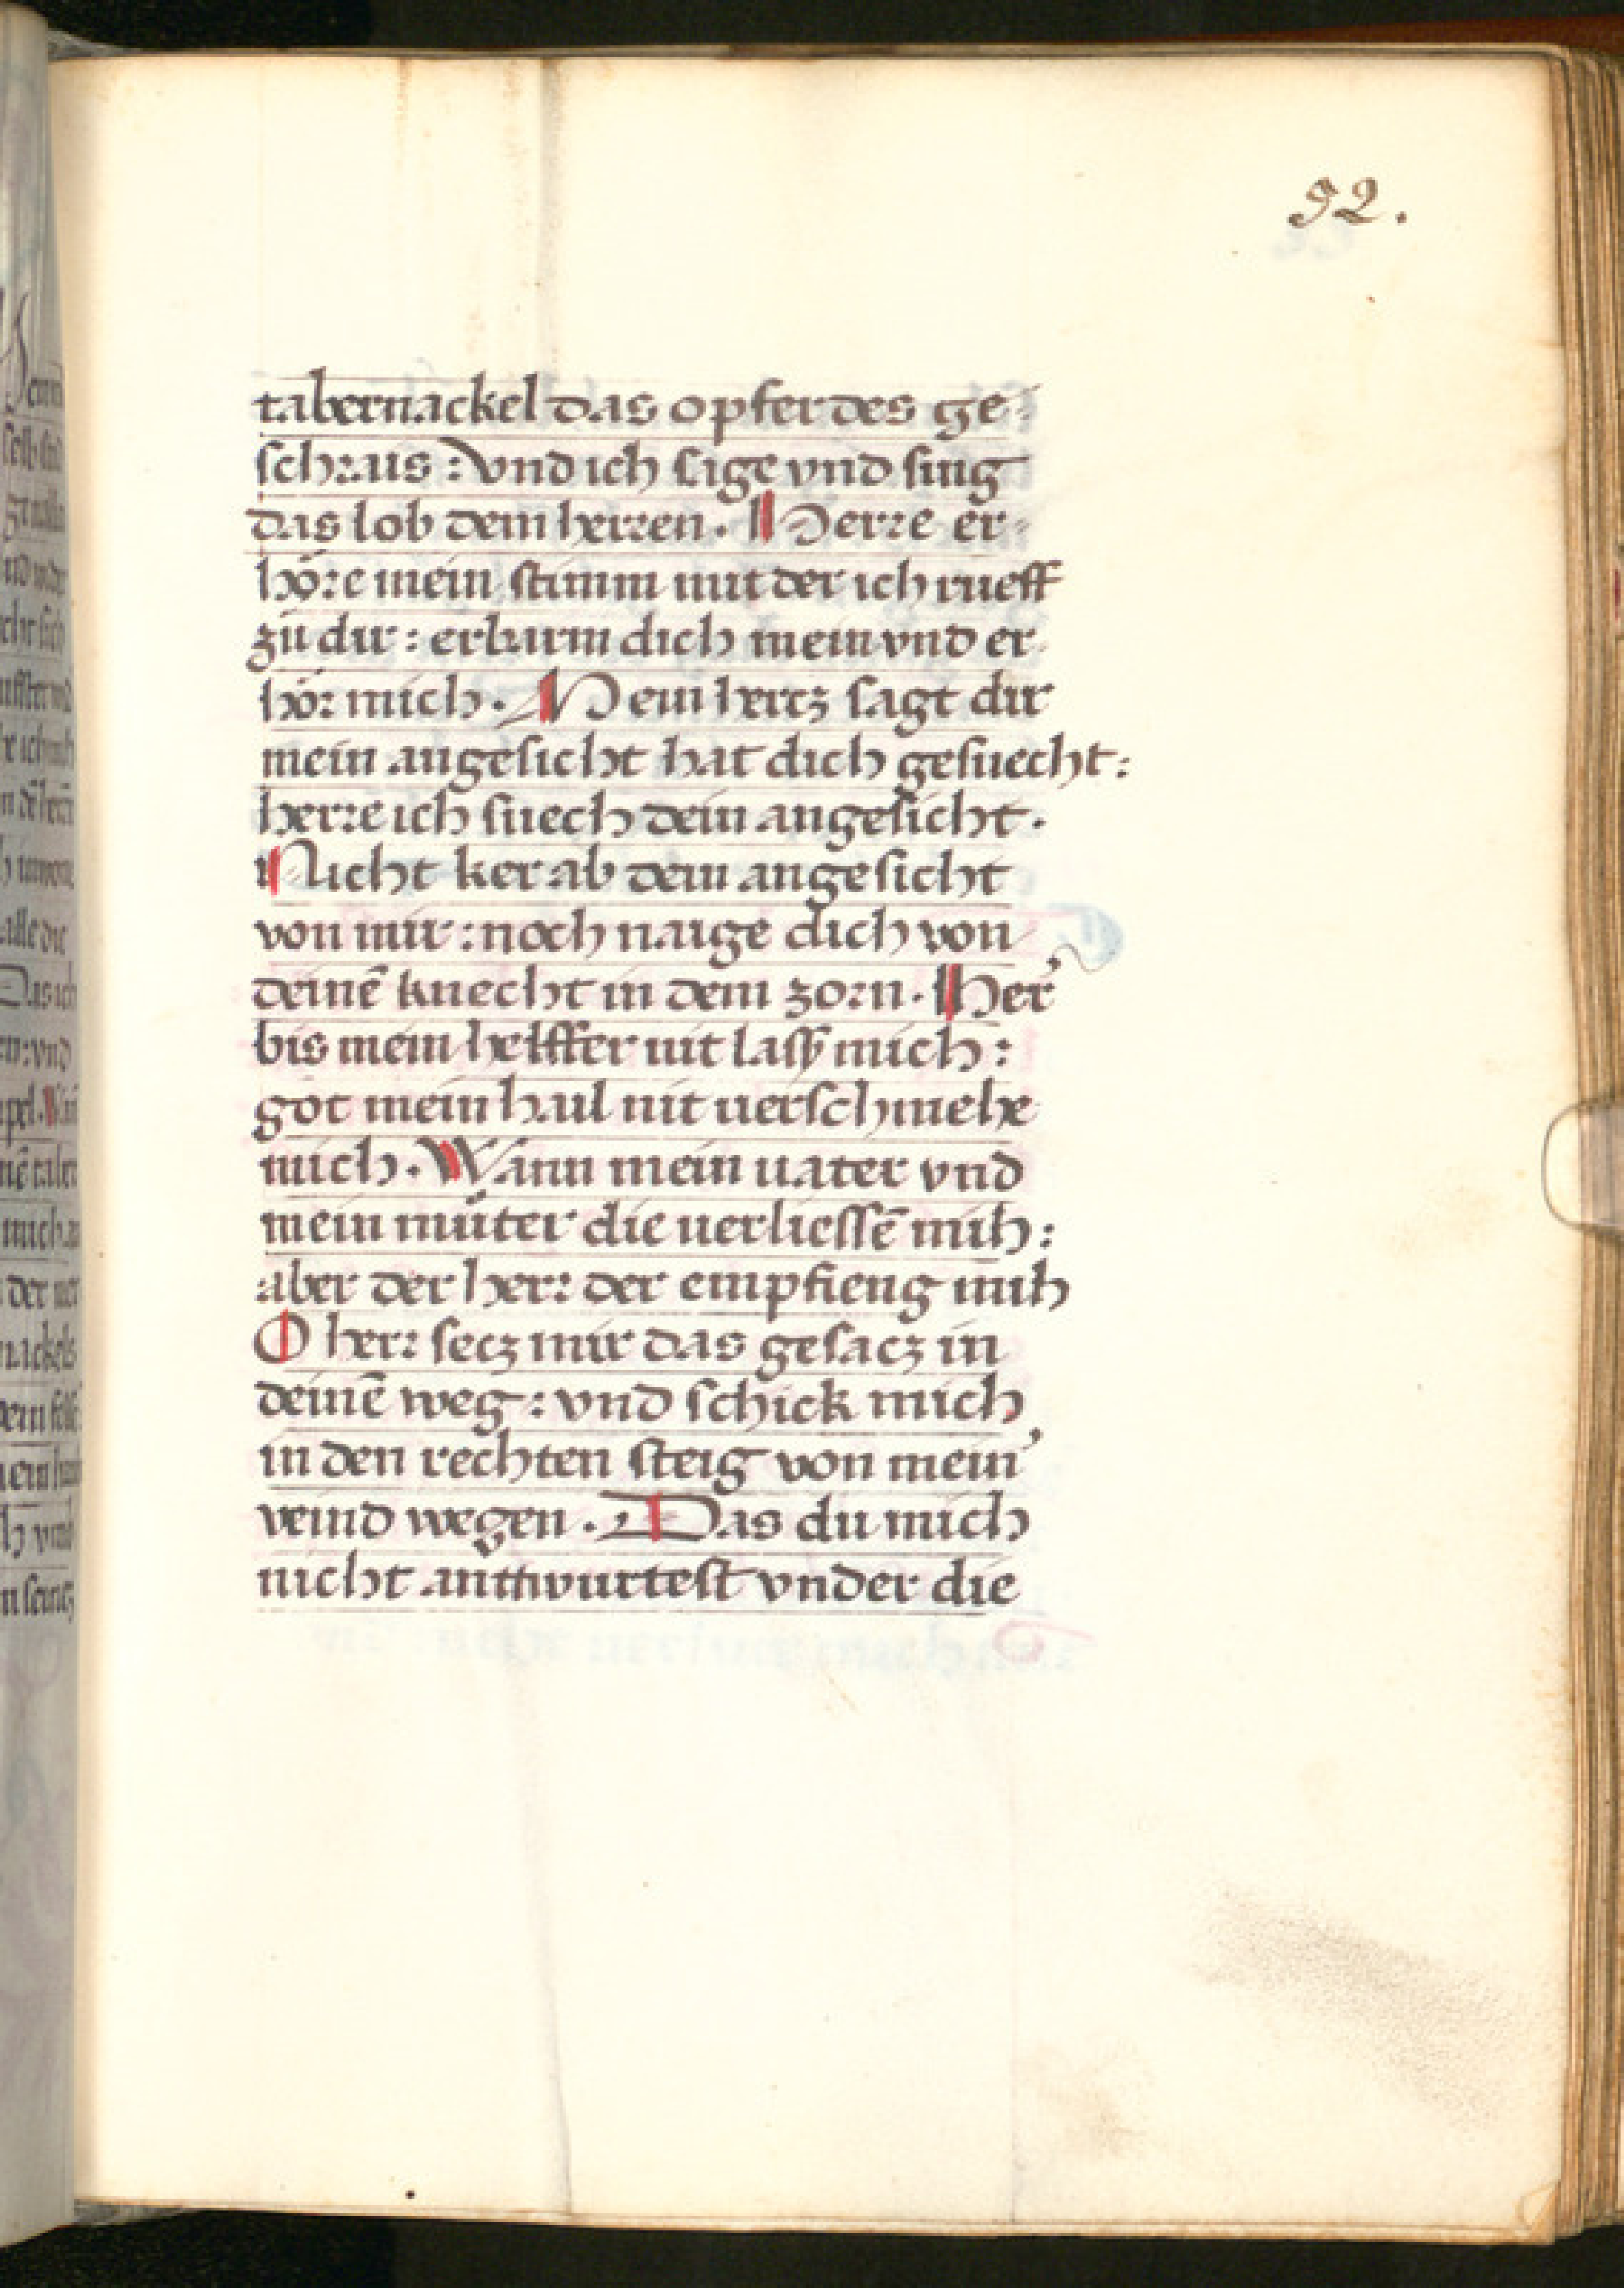 92.
tabernackel das opfer des ge-
schrais: vnd ich sage vnd sing
das lob dem herren. Herre er-
höre mein stimm mit der ich rueff
zů dir: erbarm dich mein vnd er
hör mich. Mein hertz sagt dir
mein angesicht hat dich gesuecht:
herre ich suech dein angesicht.
Nicht ker ab dein angesicht
von mir: noch naige dich von
deinē knecht in dem zorn. Her̕
bis mein helffer nit lass mich:
got mein hail nit uerschmehe
mich. Wann mein uater vnd
mein můter die uerliessē mih:
aber der herr der empfieng mih
O herr secz mir das gesacz in
deinē weg: vnd schick mich
in den rechten steig von mein̕
veind wegen. Das du mich
nicht anttwurtest vnder die